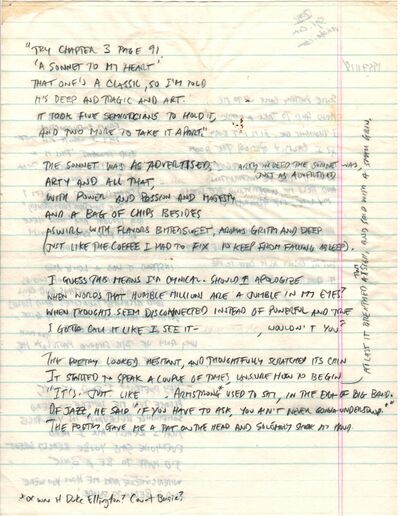 "TRY CHAPTER 3 PAGE 91
'A SONNET TO MY HEART'
THAT ONE'S A CLASSIC, SO I'M TOLD
IT'S DEEP AND TRAGIC AND ART.
IT TOOK FIVE SEMIOTICIANS TO HOLD IT,
AND TWO MORE TO TAKE IT APART."
THE SONNET WAS AS ADVERTISED,
ARTY INDEED THE SONNET WAS,
JUST AS ADVERTISED
ARTY AND ALL THAT
WITH POWER AND PASSION AND MAJESTY
AND A BAG OF CHIPS BESIDES
ASWIRL WITH FLAVORS BITTERSWEET, AROMAS GRITTY AND DEEP
(JUST LIKE THE COFFEE I HAD TO FIX TO KEEP FROM FALLING ASLEEP).
I GUESS THIS MEANS I'M CYNICAL. SHOULD I APOLOGIZE
WHEN WORDS THAT HUMBLE MILLIONS ARE A JUMBLE IN MY EYES?
WHEN THOUGHTS SEEM DISCONNECTED INSTEAD OF POWERFUL AND TRUE
I GOTTA CALL IT LIKE I SEE IT - WOULDN'T YOU?
THE POETRY LOOKED HESITANT, AND THOUGHTFULLY SCRATCHED ITS CHIN
IT STARTED TO SPEAK A COUPLE OF TIMES, UNSURE HOW TO BEGIN
"IT'S JUST LIKE ARMSTRONG* USED TO SAY, IN THE ERA OF BIG BAND.
OF JAZZ, HE SAID 'IF YOU HAVE TO ASK, YOU AIN'T NEVER GONNA UNDERSTAND.'"
THE POETRY GAVE ME A PAT ON THE HEAD AND SOLEMNLY SHOOK MY HAND.
AT LAST IT DREW ASIDE, AND SAID WITH A GRIN,
*OR WAS IT DUKE ELLINGTON? COUNT BASIE?